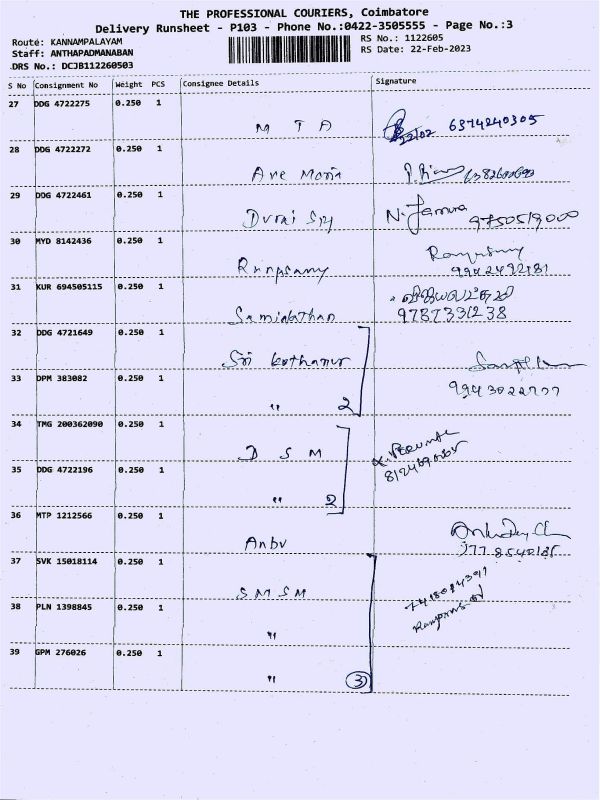 THE PROFESSIONAL COURIERS, Coimbatore
Delivery Runsheet - P103 - Phone No.:0422-3505555 - Page No.:3
Route: KANNAMPALAYAM
RS No.: 1122605
Staff: ANTHAPADMANABAN
RS Date: 22-Feb-2023
DRS No.: DCJB112260503
S No Consignment No Weight PCS Consignee Details Signature
27 DDG 4722275 0.250 1
M T A 22/02 6374240305
28 DDG 4722272 0.250 1
Ave Maria
29 DDG 4722461 0.250 1
Durai N. 9750519000
30 MYD 8142436 0.250 1
9942492181
31 KUR 694505115 0.250 1
9787331238
32 DDG 4721649 0.250 1
Sri
33 DPM 383082 0.250 1
" 2 9943022777
34 TMG 200362090 0.250 1
D S M
35 DDG 4722196 0.250 1
" 2
36 MTP 1212566 0.250 1
Anbu
37 SVK 15018114 0.250 1
S M S M
38 PLN 1398845 0.250 1
"
39 GPM 276026 0.250 1
" 3